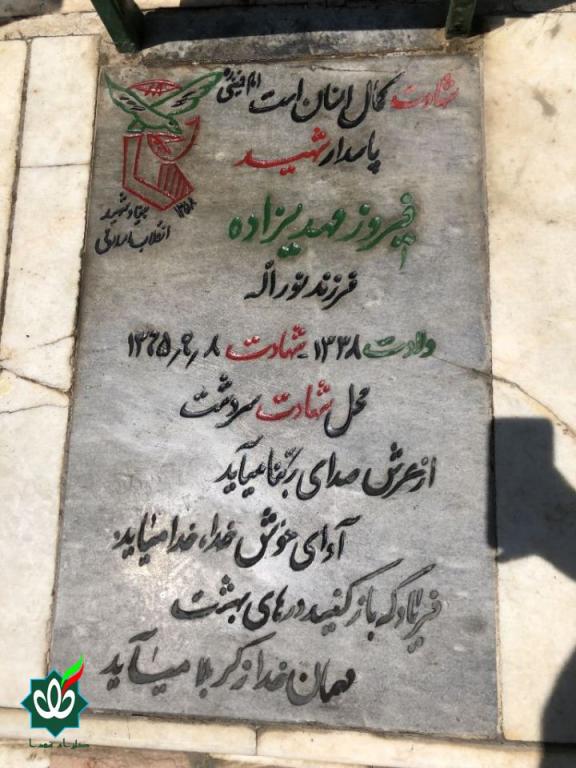 شهادت کمال انسان است امام خمینی
بنیاد شهید
انقلاب اسلامی
۱۳۵۸
پاسدار شهید
فیروز مهدیزاده
فرزند نوراله
ولادت ۱۳۳۸ـ شهادت ۱۳۶۵٫۹٫۸
محل شهادت سردشت
از عرش صدای ربنا میآید
آوای خوش خدا، خدا میآید
فریاد که باز کنید درهای بهشت
مهمان خدا از کربلا میآید